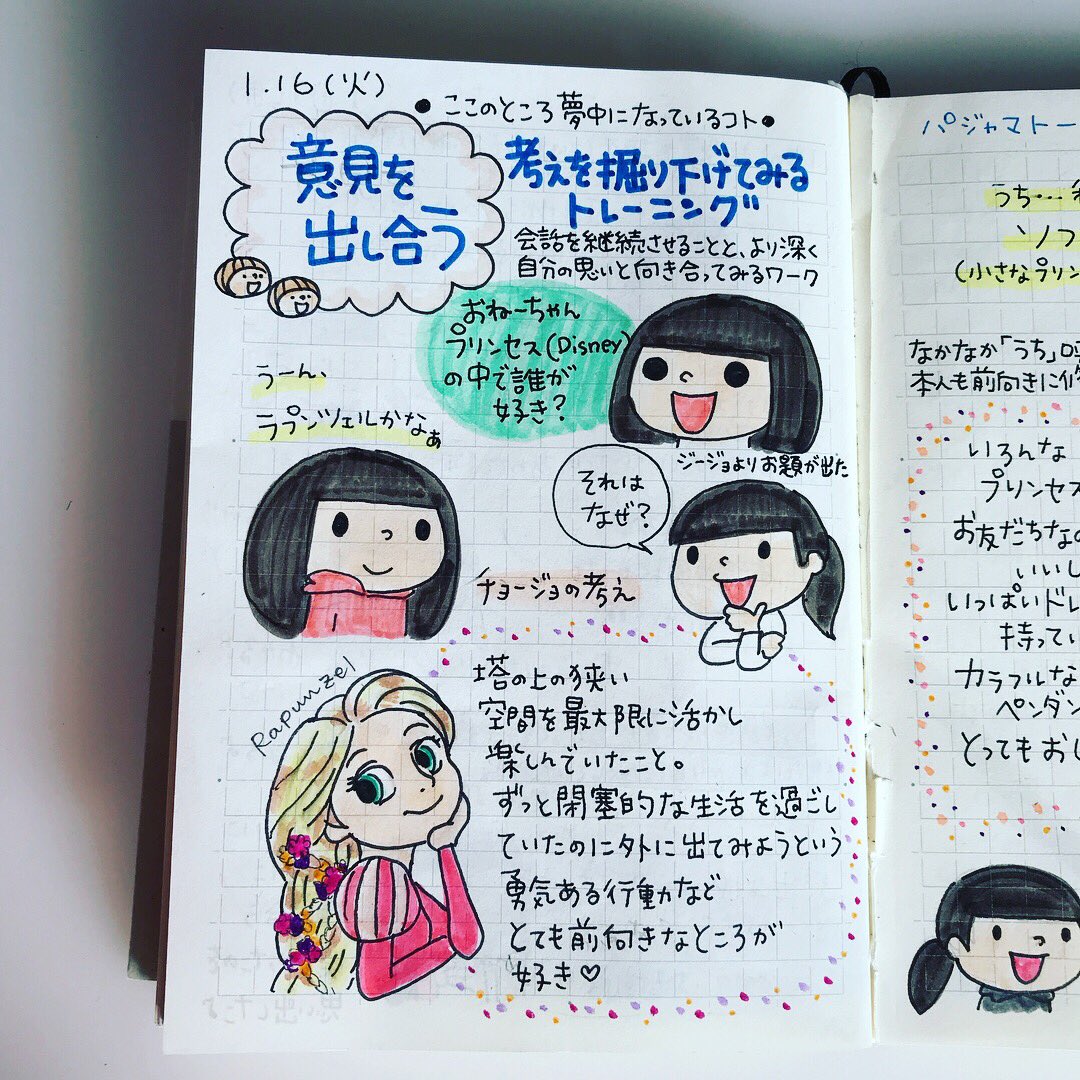 1.16(火)
●ここのところ夢中になっているコト●
意見を
出し合う
考えを掘り下げてみる
トレーニング
会話を継続させることと、より深く
自分の思いと向き合ってみるワーク
おねーちゃん
プリンセス(Disney)
の中で誰が
好き?
うーん、
ラプンツェルかなぁ
ジージョよりお題が出た
それは
なぜ?
チョージョの考え
Rapunzel
塔の上の狭い
空間を最大限に活かし
楽しんでいたこと。
ずっと閉塞的な生活を過ごし
ていたのに外に出てみようという
勇気ある行動など
とても前向きなところが
好き♡
パジャマトー
うち…
ソフ
(小さなプリン
なかなか「うち」
本人も前向きに
いろんな
プリンセス
お友だちなの
いいし
いっぱいドレ
持ってい
カラフルな
ペンダン
とってもおし